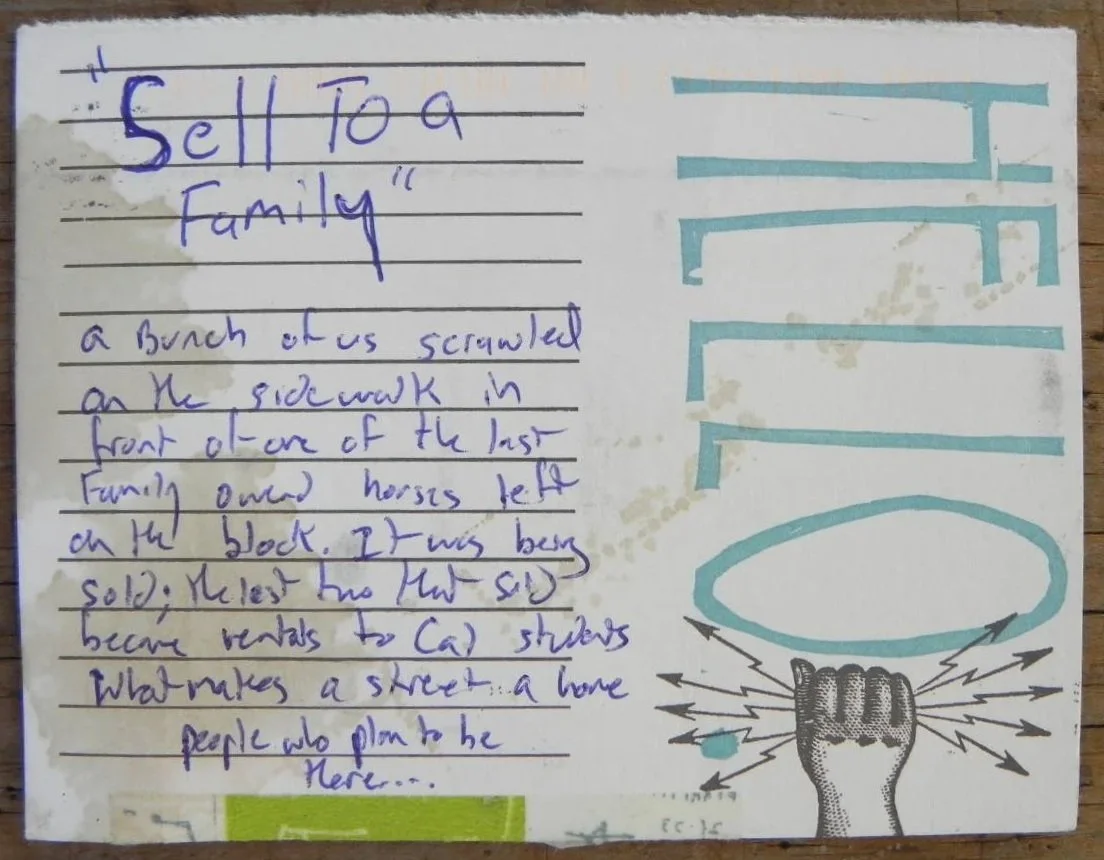 "Sell To a
Family"
a Bunch of us scrawled
on the sidewalk in
front of one of the last
Family owned horses left
on the block. It was being
sold; the last two that sold
became rentals to Cal students
What makes a street a home
people who plan to be
there....
HELLO